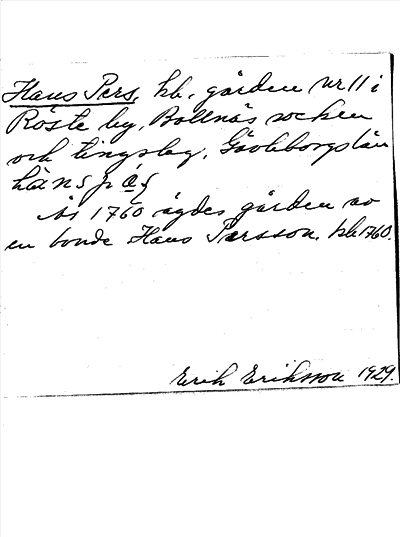 Hans Pers, kb, gården nr 11 i
Röste by, Bollnäs socken
och tingslag, Gävleborgs län
hans pæs
År 1760 ägdes gården av
en bonde Hans Persson. kb 1760.
Erik Eriksson 1929.